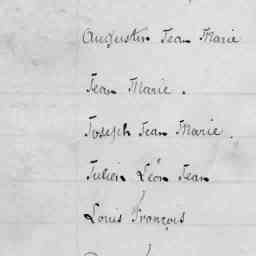 Augustin Jean Marie
Jean Marie.
Joseph Jean Marie.
Julien Léon Jean
Louis François